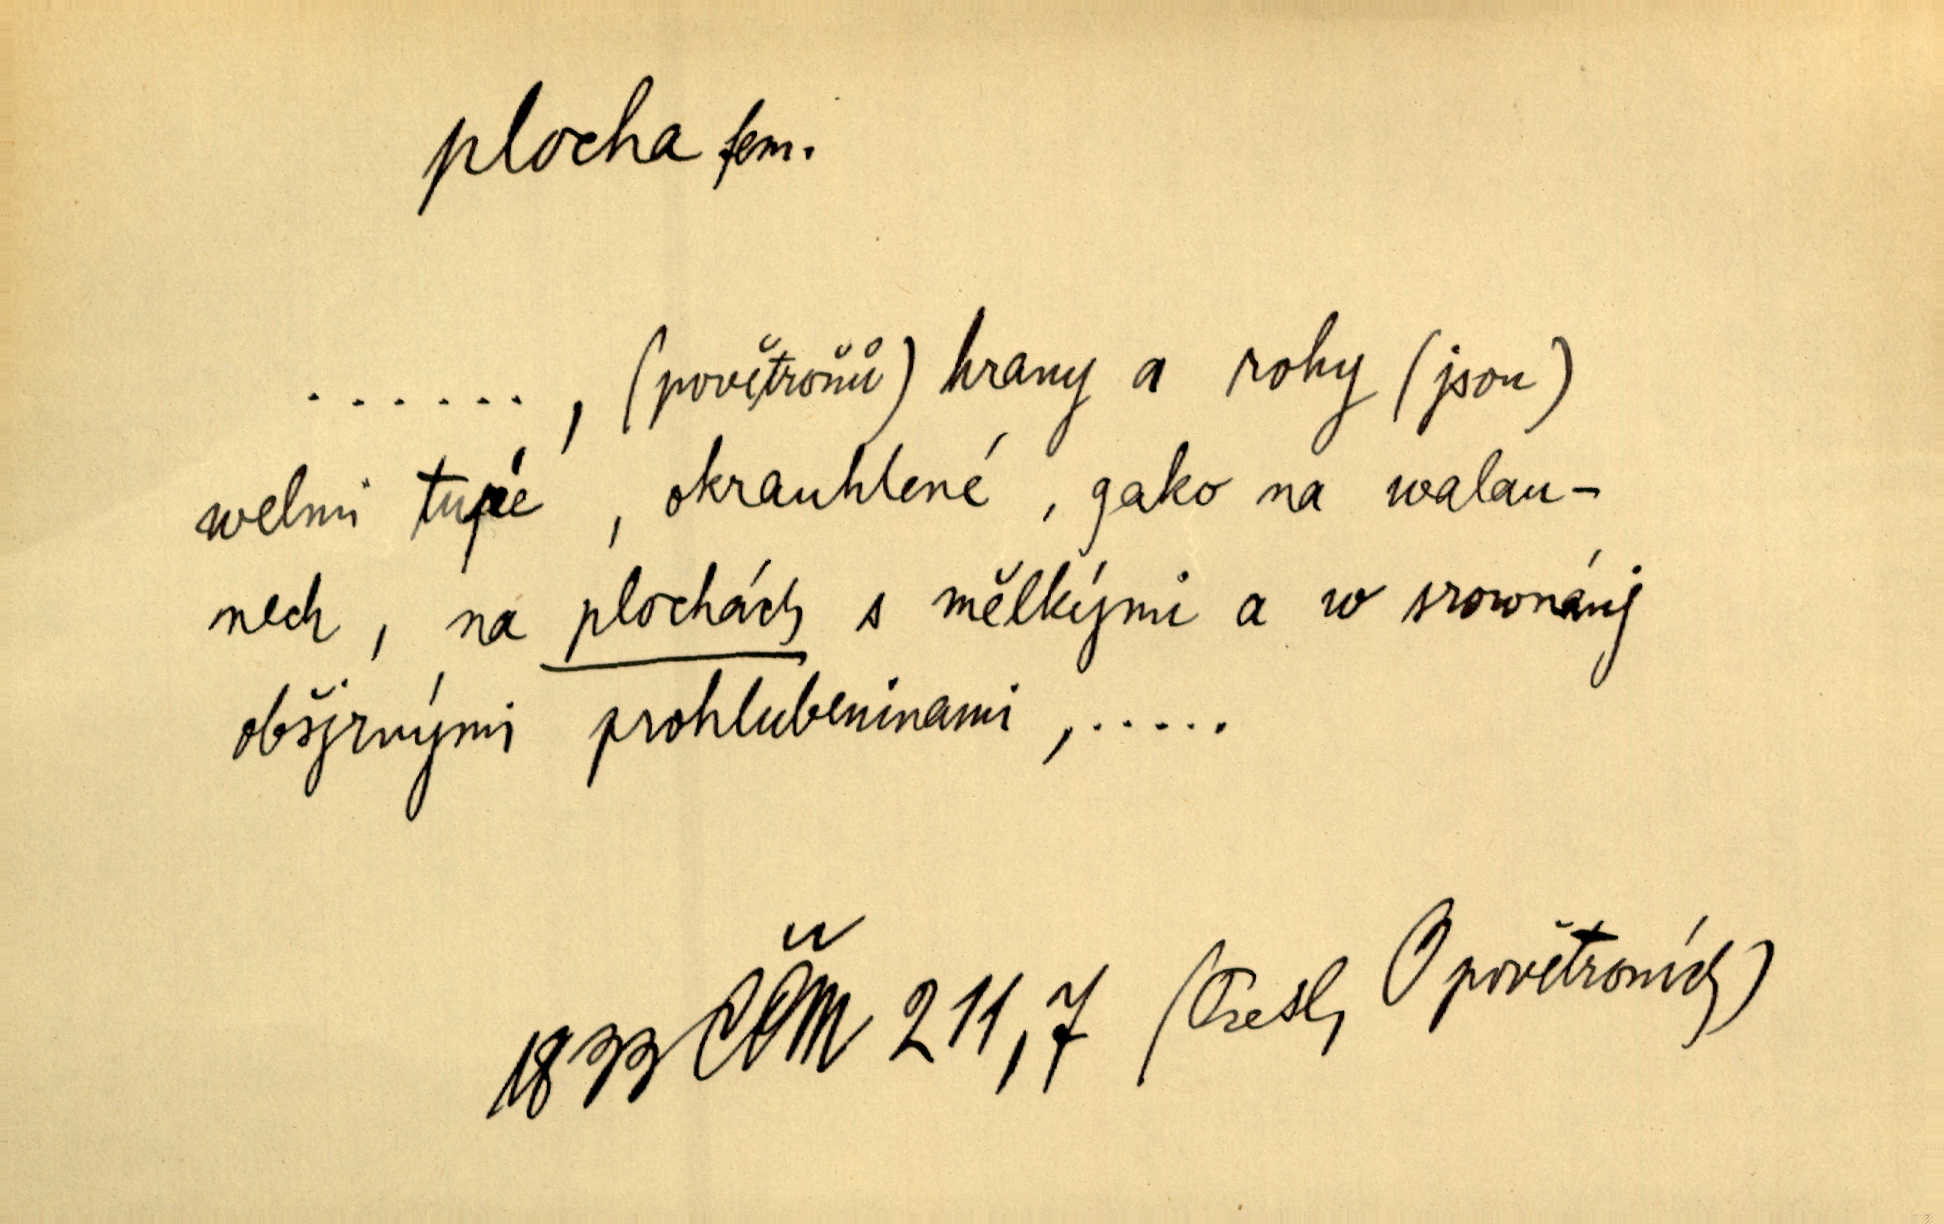 plocha fem.
. . . . . . , (povětroňů) hrany a rohy (jsou)
welmi tupé , okrauhlené , gako na walau-
nech , na plochách s mělkými a w srownánj
obšjrnými prohlubeninami , . . . . .
1833 ČČM 211,7 (Presl, O povětroních)